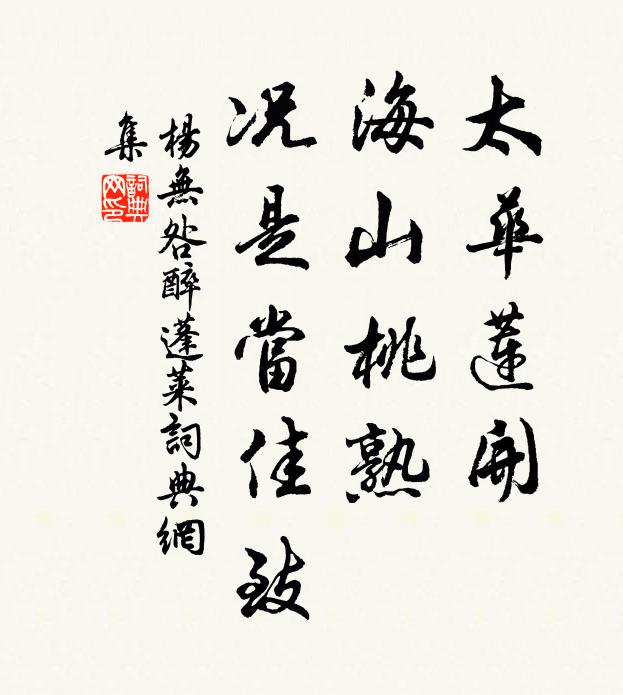 太華蓮開
海山桃熟
况是當佳致
楊無咎醉蓬萊詞典網
集
詞典
网印